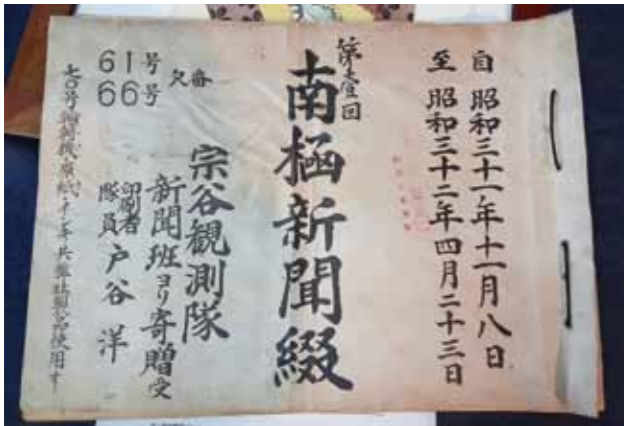 自 昭和三十一年十一月八日
至 昭和三十二年四月二十三日
第壹回
南極新聞綴
宗谷観測隊
新聞班ヨリ寄贈受
印刷者
隊員 戸谷 洋
61号
66号
欠番